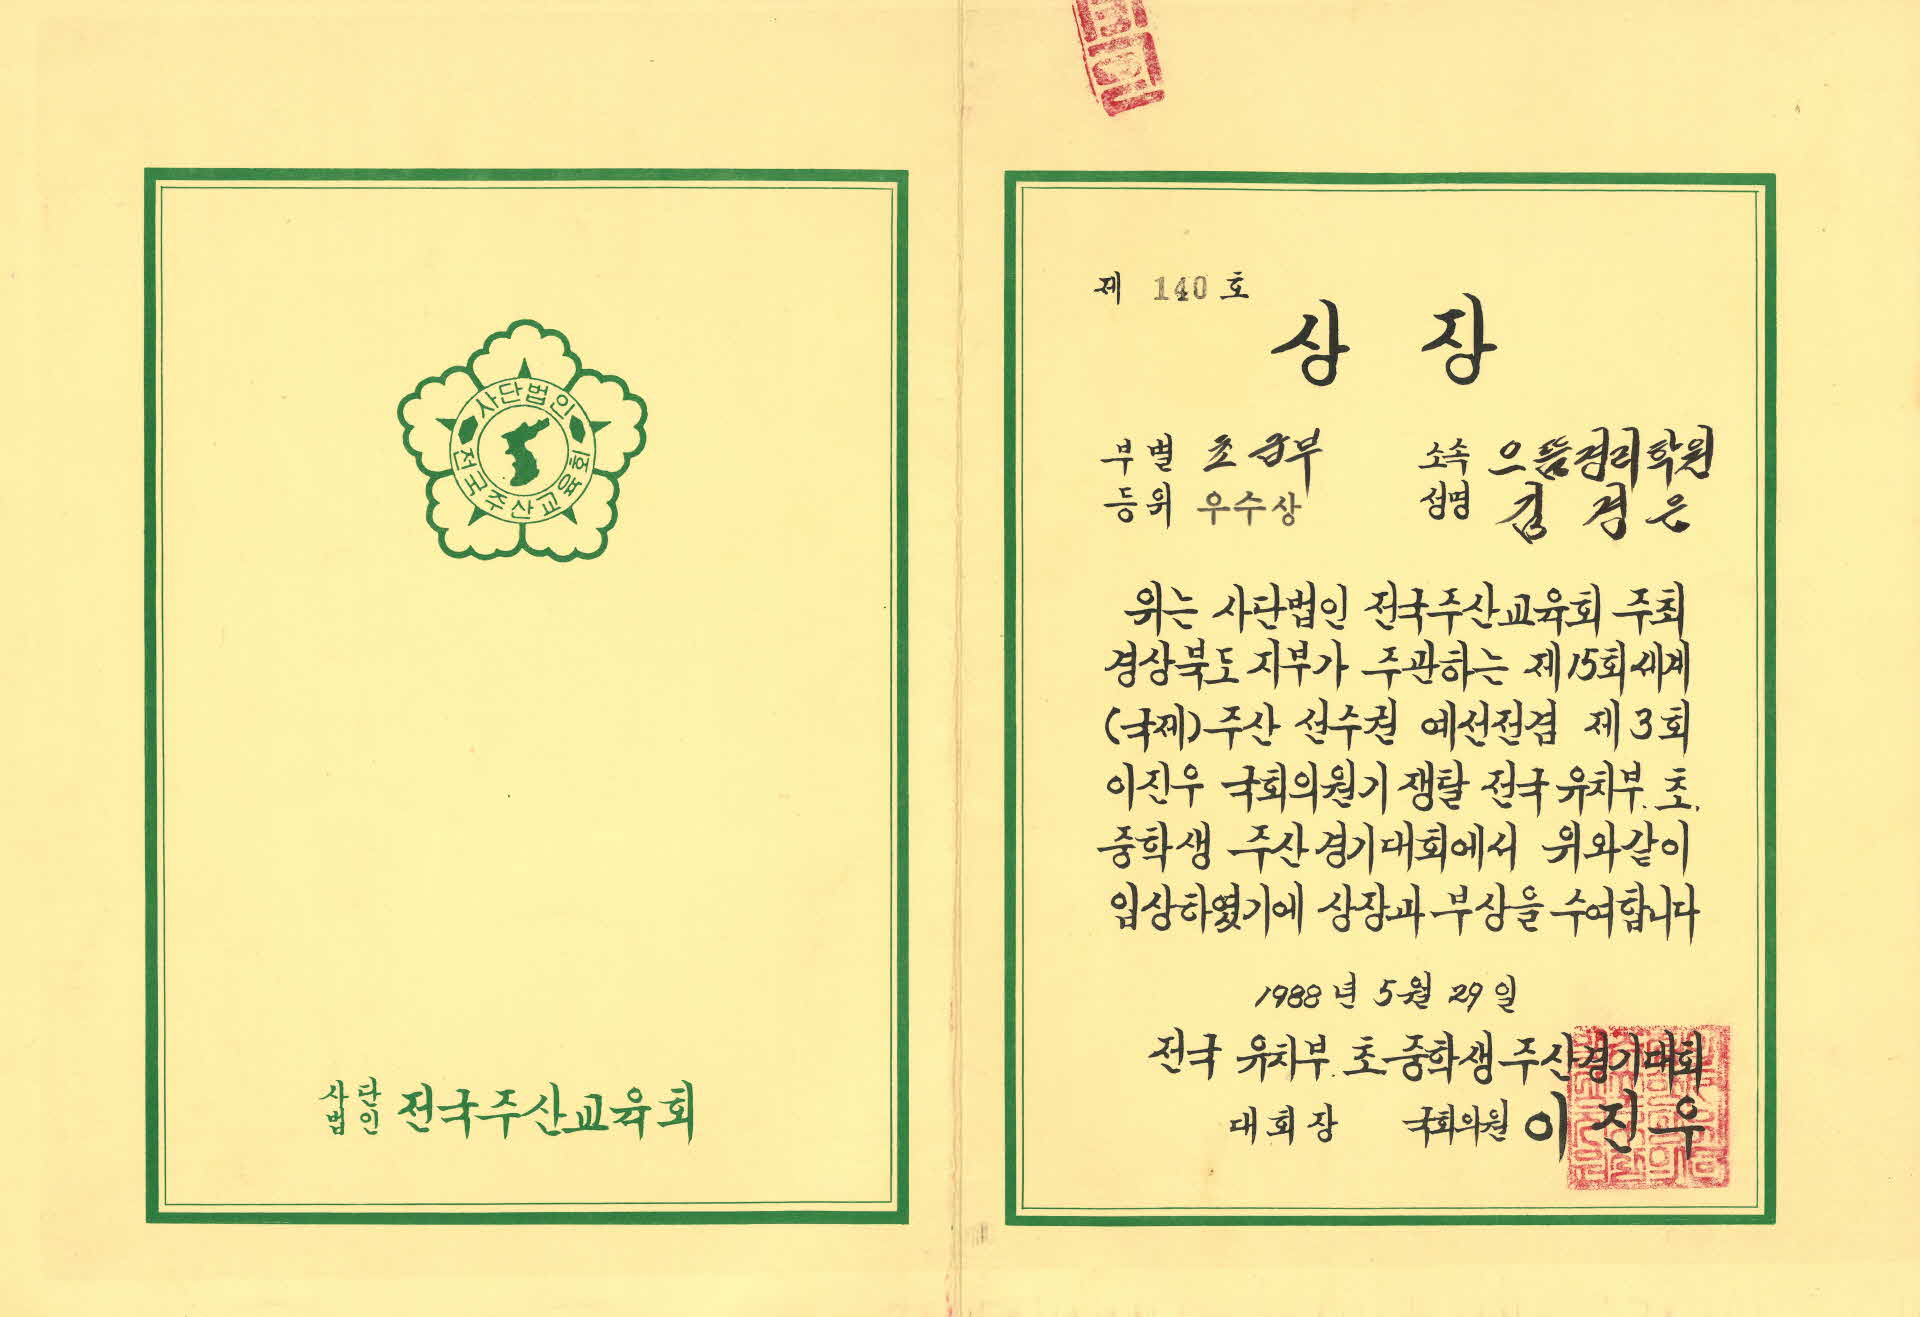 사단법인
전국주산교육회
사단
법인 전국주산교육회
제 140 호
상 장
부별 초급부
소속 으뜸경리학원
등위 우수상
성명 김경은
위는 사단법인 전국주산교육회 주최
경상북도 지부가 주관하는 제15회 세계
(국제)주산 선수권 예선전겸 제3회
이진우 국회의원기 쟁탈 전국 유치부.초.
중학생 주산경기대회에서 위와같이
입상하였기에 상장과 부상을 수여합니다
1988년 5월 29일
전국 유치부.초·중학생주산경기대회
대회장 국회의원 이진우